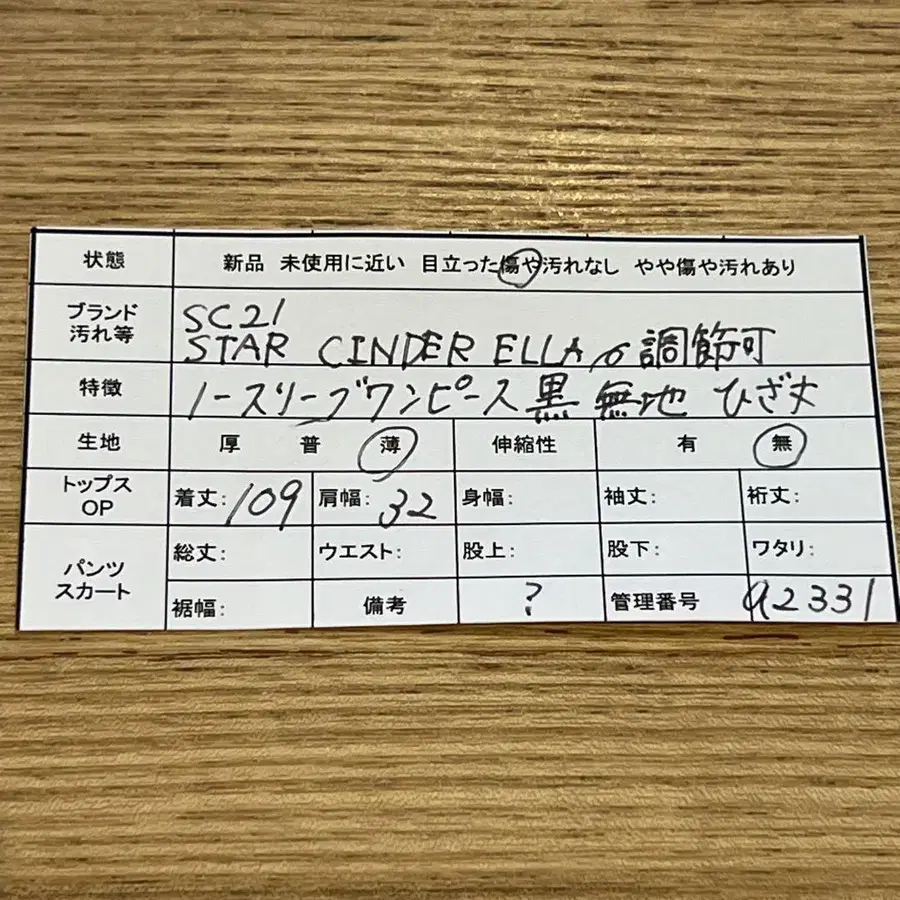 状態 新品 未使用に近い 目立った傷や汚れなし やや傷や汚れあり
ブランド 汚れ等 SC21
STAR CINDER ELLA 調節可
特徴 ノースリーブワンピース黒 無地 ひざ丈
生地 厚 普 薄 伸縮性 有 無
トップス OP 着丈: 109 肩幅: 32 身幅: 袖丈: 裄丈:
パンツ スカート 総丈: ウエスト: 股上: 股下: ワタリ:
裾幅: 備考 ? 管理番号 a2331